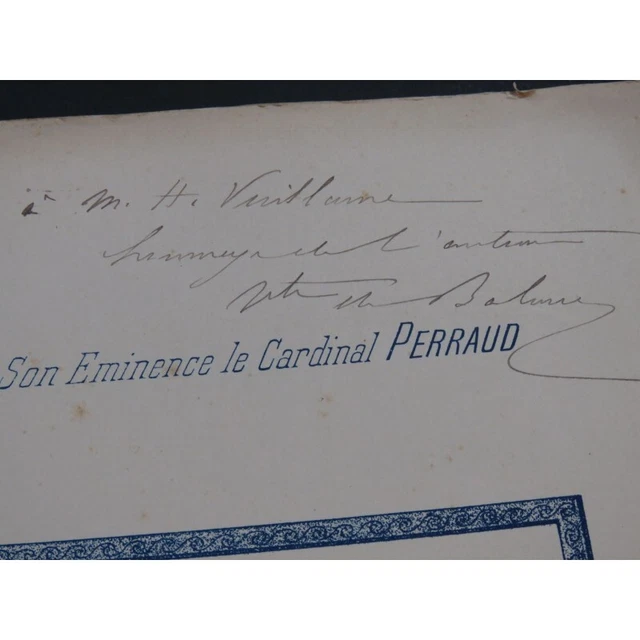 à M. H. Vuillaume
hommage de l'auteur
Vte de
Son Eminence le Cardinal PERRAUD